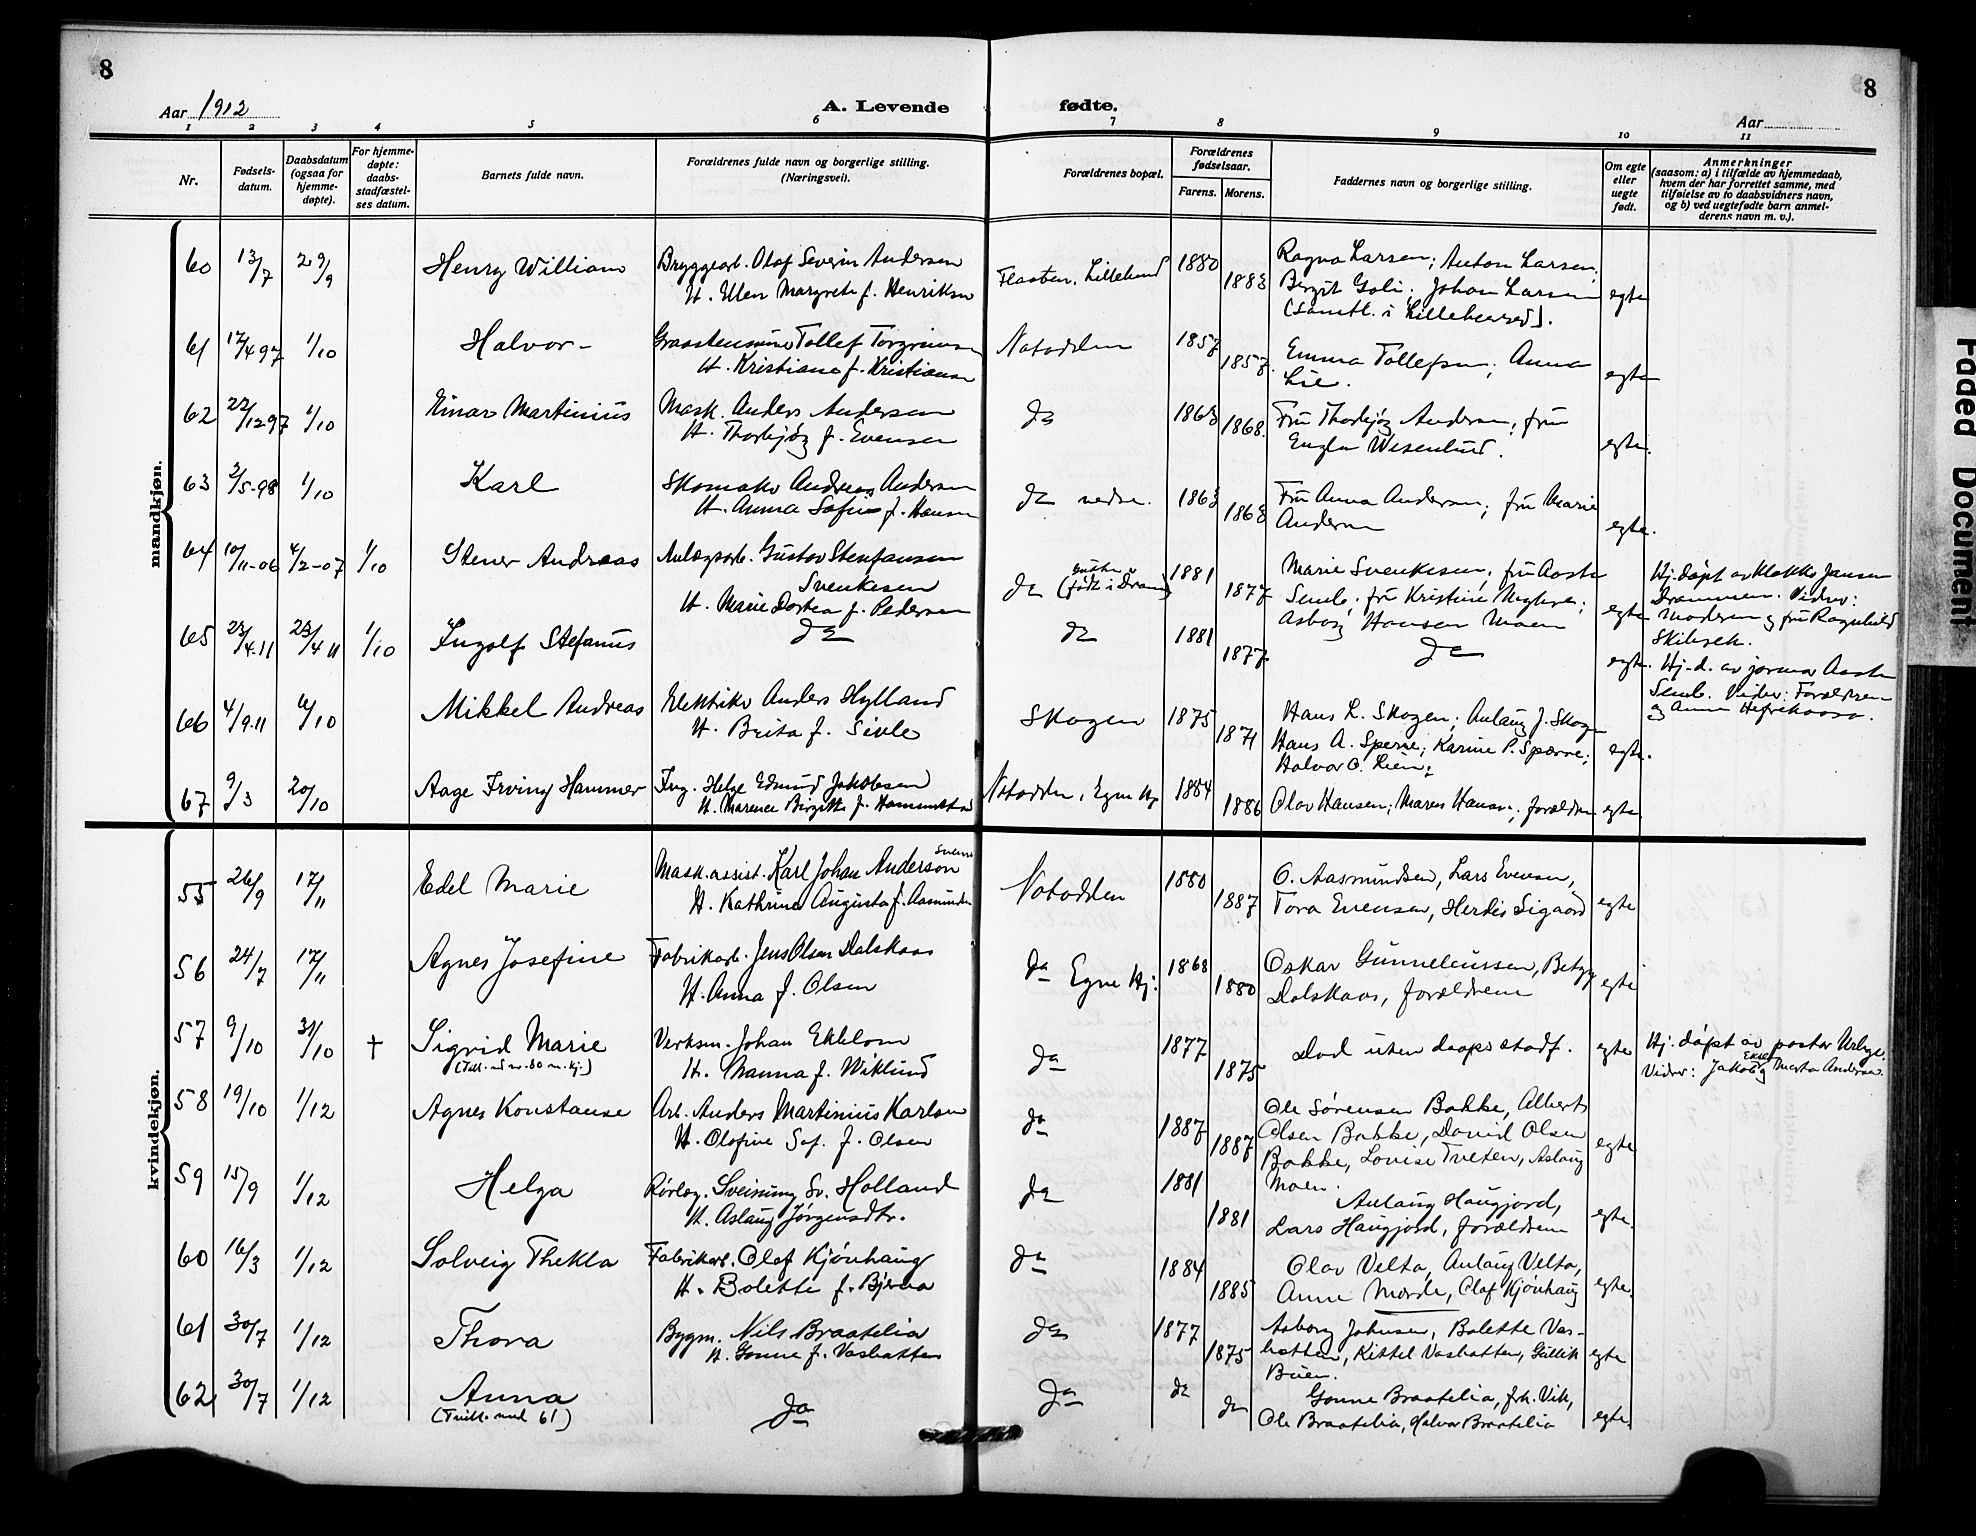 8
8
Aar 1912
A. Levende
fødte.
Aar
1 2 3 4 5 6 7 8 9 10 11
Nr.
Fødsels-
datum.
Daabsdatum
(ogsaa for
hjemme-
døpte).
For hjemme-
døpte:
daabs-
stadfæstel-
ses datum.
Barnets fulde navn.
Forældrenes fulde navn og borgerlige stilling.
(Næringsvei).
Forældrenes bopæl.
Forældrenes
fødselsaar.
Farens. Morens.
Faddernes navn og borgerlige stilling.
Om egte
eller
uegte
født.
Anmerkninger
(saasom: a) i tilfælde av hjemmedaab,
hvem der har forrettet samme, med
tilføielse av to daabsvidners navn,
og b) ved uegtefødte barn anmel-
derens navn m. v.).
mandkjøn.
60 13/7 29/9 Henry William Bryggearb. Olaf Severin Andersen 1880 Ragna Larsen; Anton Larsen;
H. Ellen Margrete f. Henriksen 1883 Birgit Goli; Johan Larsen egte
61 17/4 97 1/10 Halvor Tollef Torgrimsen Notodden 1857 Emma Tollefsen; Anna
H. Kristiane f. Kristiansen 1857. Lie. egte
62 22/12 97 1/10 Einar Martinius Mask. Anders Andersen do 1863 Fru Thorbjøg Andersen; fru
H. Thorbjøg f. Evensen 1868. egte.
63 2/5-98 1/10 Karl Skomaker Andreas Andersen do 1863 Fru Anna Andersen; fru Marie
H. Anna Sofie f. Hansen 1868 Andersen egte.
64 10/11-06 4/2-07 1/10 Stener Andreas Anlægsarb. Gustav 1881 Marie Svenkesen; fru Aaste
Svenkesen (født i Dramm) 1877 Semb. fru Kristine
H. Marie Dortea f. Pedersen Asborg Hansen Moen egte
Hj. døpt av Jansen
Drammen. Vidner:
Moderen og fru Ragnhild
65 23/4-11 23/4 11 1/10 Ingolf Stefanus do do 1881 1877 do egte.
Hj. d. av jormor Aaste
Semb. Vidner: Forældrene
og Anna
66 4/9-11 6/10 Mikkel Andreas Elektriker Anders Hylland Skogen 1875 Hans L. Skogen; Aulaug J. Skogen
H. Brita f. Sivle 1871 Hans A. Sperre; Karine P. Spærre; egte.
Halvor O. Lien;
67 9/3 20/10 Aage Irving Hammer Ing. Helge Edmund Jakobsen Notodden, Egne Hj 1884
H. Marence Birgitte f. Hammerstad 1886 Olav Hansen; Maren Hansen; forældrene egte
kvindekjøn.
55 26/9 17/11 Edel Marie Mask.assist. Karl Johan Anderson Notodden 1880 O. Aasmundsen, Lars Evensen,
H. Kathrine Augusta f. Aasmundsen 1887 Tora Evensen, Herdis Sigaard egte
56 24/7 17/11 Agnes Josefine Fabrikarb. Jens Olsen Dalskaas do Egne Hj. 1868 Oskar Gunneleussen, Betzy
H. Anna f. Olsen 1880 Dalskaas, forældrene egte
57 9/10 31/10 † Sigrid Marie Verksm. Johan Ekblom do 1877 Død uten daapsstadf. egte
H. Nanna f. Wiklund 1875
Hj. døpt av pastor
Vidner: Jakob Ekblom og Marta Andersen.
58 19/10 1/12 Agnes Konstanse Arb. Anders Martinius Karlsen do 1887 Ole Sørensen Bakke, Albert
H. Olefine Sof. f. Olsen 1887 Olsen Bakke, David Olsen egte
Bakke, Lovise Tveten, Aslaug
Moen.
59 15/9 1/12 Helga Rørlæg. Sveinung Sv. Holland do 1881 Aulaug Haugjord,
H. Aslaug Jørgensdtr. 1881 Lars Haugjord, forældrene egte.
60 16/3 1/12 Solveig Thekla Fabrikarb. Olaf Kjønhaug do 1884 Olav Velta, Aulaug Velta,
H. Bolette f. Bjerva 1885 Anne Morde, Olaf Kjønhaug egte.
61 30/7 1/12 Thora Bygm. Nils Braatelia do 1877 Aaborg Johnsen, Bolette Vas-
H. Gonne f. Vashatten 1875 hatten, Kittel Vashatten, Gullik egte
Buen.
62 30/7 1/12 Anna do do do Gonne Braatelia, frk. Vik,
(Tvill. med 61) do Ole Braatelia, Halvor Braatelia egte.
Faded Document